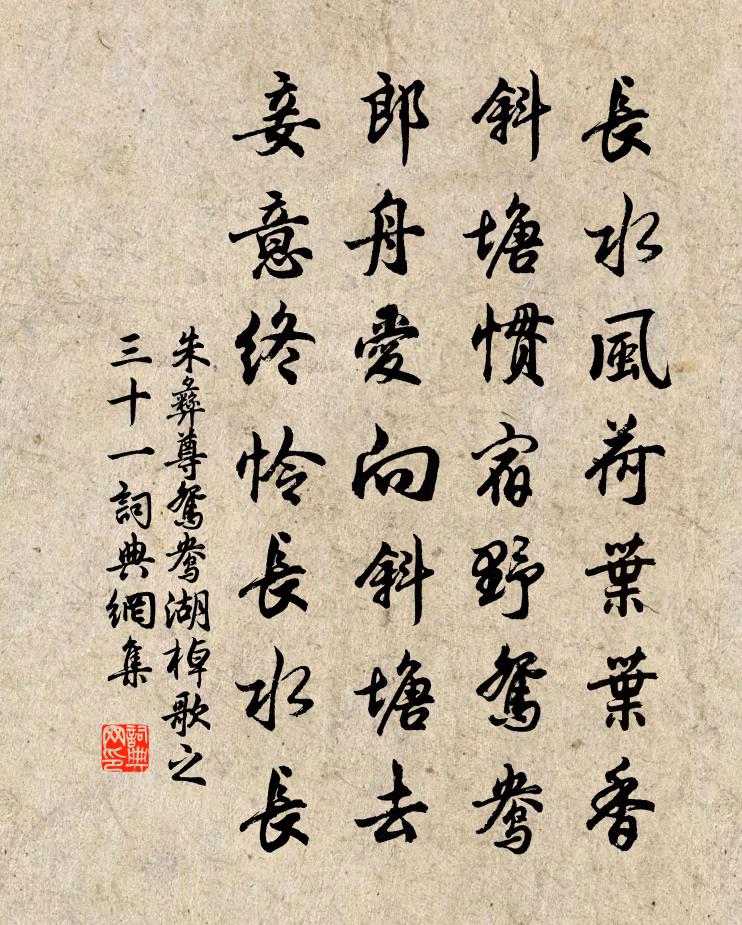 長水風荷葉葉香
斜塘慣宿野鴛鴦
郎舟愛向斜塘去
妾意終怜長水長
朱彞尊鴛鴦湖棹歌之
三十一詞典網集
詞典
网印